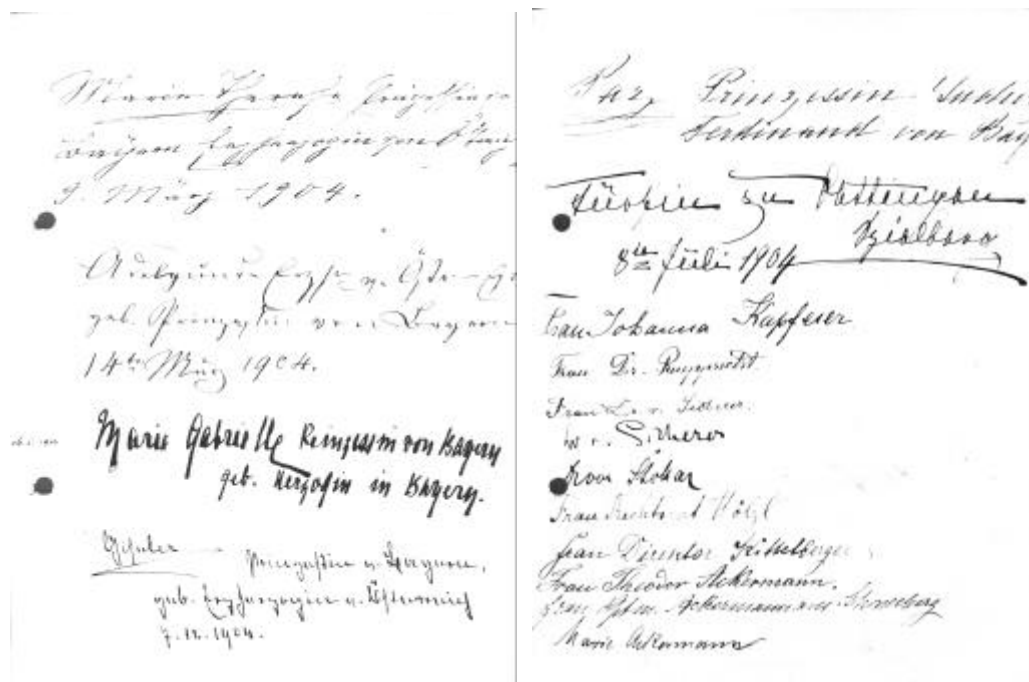 Marie Therese Prinzessin
Bayern Erzherzogin von
9. März 1904.
Adelgunde Erzh. v.
geb. Prinzessin von Bayern
14te März 1904.
Marie Gabrielle Prinzessin von Bayern
geb. Herzogin in Bayern.
Gisela
Prinzessin v. Bayern,
geb. Erzherzogin v. Österreich
7.12.1904.
Paz, Prinzessin Ludw
Ferdinand von Bay
Fürstin zu Oettingen
Spielberg
8te Juli 1904
Frau Johanna Kapferer
Frau Dir. Rupprecht
Frau
v.
Frau Stokar
Frau Hölzl
Frau Direktor Kittelberger
Frau Theodor Ackermann.
Frau Ackermann aus
Marie Ackermann